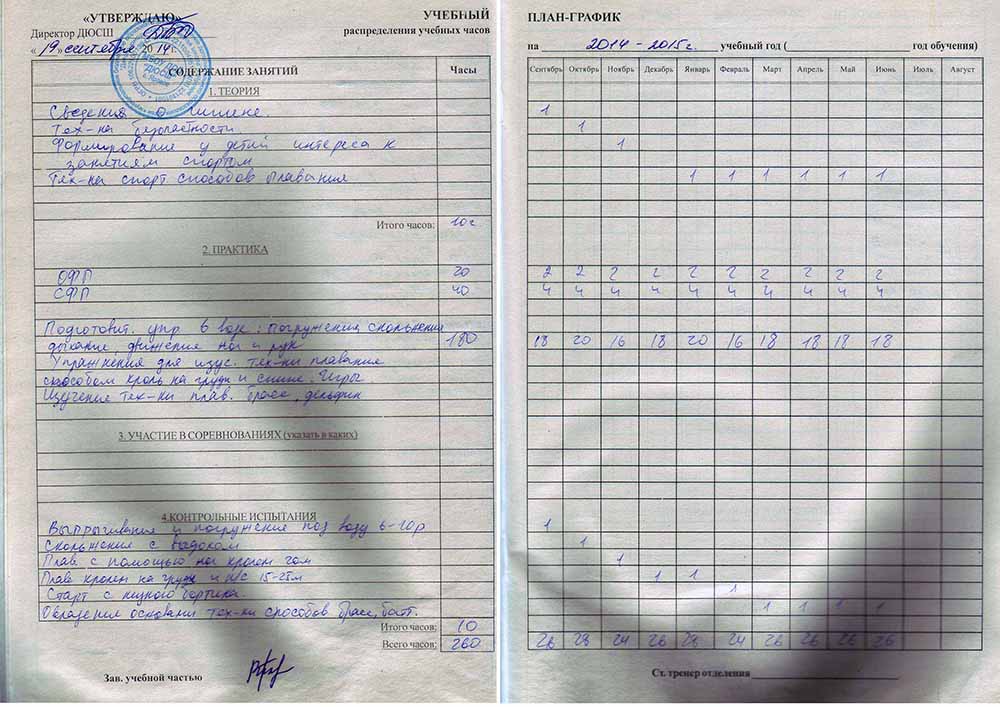 «УТВЕРЖДАЮ»
Директор ДЮСШ
«19» сентября 2014 г.
УЧЕБНЫЙ
распределения учебных часов
СОДЕРЖАНИЕ ЗАНЯТИЙ Часы
1. ТЕОРИЯ
Сведения о гигиене.
Тех-ка безопастности.
Формирование у детей интереса к
занятиям спортом
Тех-ка спорт способов плавания
Итого часов: 10 ч
2. ПРАКТИКА
ОФП 20
СФП 40
Подготовит. упр в воде: погружения скольжения
дыхание движение ног и рук 180
Упражнения для изуч. тех-ки плавание
способом кроль на груди и спине. Игры
Изучение тех-ки плав. брасс, дельфин
3. УЧАСТИЕ В СОРЕВНОВАНИЯХ (указать в каких)
4. КОНТРОЛЬНЫЕ ИСПЫТАНИЯ
Выпрыгивания и погружение под воду 6-10р
Скольжение с
Плав. с помощью ног кролем
Плав кролем на груди и н/с 15-25м
Старт с низкого бортика
Овладение основами тех-ки способов брасс, батт.
Итого часов: 10
Всего часов: 260
Зав. учебной частью
ПЛАН-ГРАФИК
на 2014-2015г. учебный год ( год обучения)
Сентябрь Октябрь Ноябрь Декабрь Январь Февраль Март Апрель Май Июнь Июль Август
1
1
1
1 1 1 1 1 1
2 2 2 2 2 2 2 2 2 2
4 4 4 4 4 4 4 4 4 4
18 20 16 18 20 16 18 18 18 18
1
1
1
1 1
1
1 1 1 1
26 28 24 26 28 24 26 26 26 26
Ст. тренер отделения